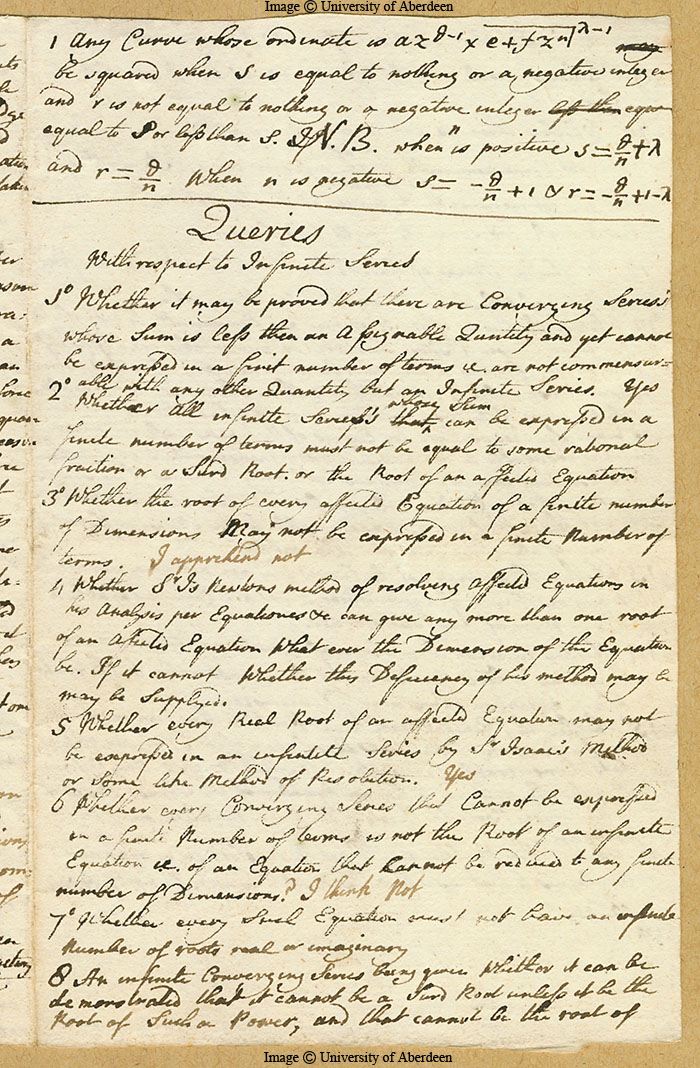 Image © University of Aberdeen
1 Any Curve whose ordinate is az^(θ-1) × e+fz^n|^(λ-1) may
be squared when S is equal to nothing or a negative integer
and r is not equal to nothing or a negative integer less than equal
equal to S or less than S. N.B. when n is positive s = θ/n + λ
and r = θ/n When n is negative s = -θ/n + 1 & r = -θ/n + 1 - λ
Queries
With respect to Infinite Series
1° Whether it may be proved that there are Converging Series's
whose Sum is less then an Assignable Quntity and yet cannot
be expressed in a finit number of terms i.e. are not commensur-
able with any other Quantity but an Infinite Series. Yes
2° Whether All infinite Series's that whose Sum can be expressed in a
finite number of terms must not be equal to some rational
fraction or a Surd Root. or the Root of an affected Equation
3° Whether the root of every affected Equation of a finite number
of Dimensions May not be expressed in a finite Number of
terms. I apprehend not
4 Whether Sr Is Newtons method of resolving affected Equations in
his Analysis per Equationes &c can give any more than one root
of an Affected Equation What ever the Dimension of this Equation
be. If it cannot Whether this Deficiency of his method may be
may be Supplyed.
5 Whether every Real Root of an affected Equation may not
be exspressed in an infinite Series by Sr Isaac's Method
or some like Method of Resolution. Yes
6 Whether every Converging Series that Cannot be expressed
in a finite Number of terms is not the Root of an infinite
Equation i.e. of an Equation that Cannot be reduced to any finite
number of Dimensions? I think Not
7° Whether every Such Equation must not have an infinite
Number of roots real or imaginary
8 An infinite Converging Series being given Whether it can be
demonstrated that it cannot be a Surd Root unless it be the
Root of Such a Power, and that cannot be the root of
Image © University of Aberdeen